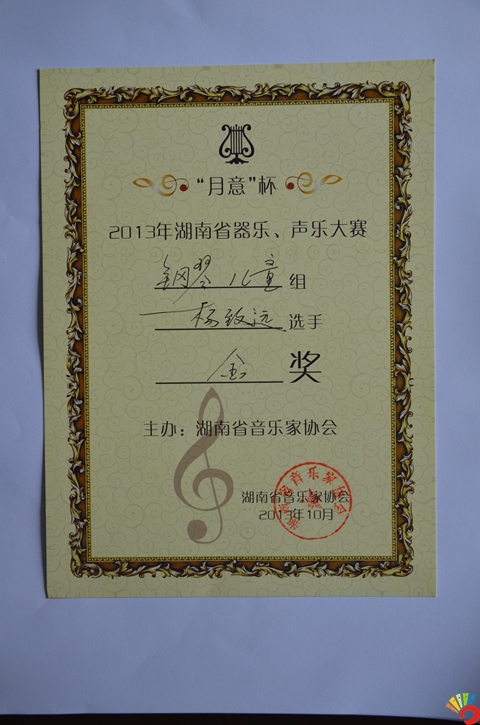 “月意”杯
2013年湖南省器乐、声乐大赛
钢琴儿童组
杨致远选手
金奖
主办：湖南省音乐家协会
湖南省音乐家协会
2013年10月
湖南省音乐家协会